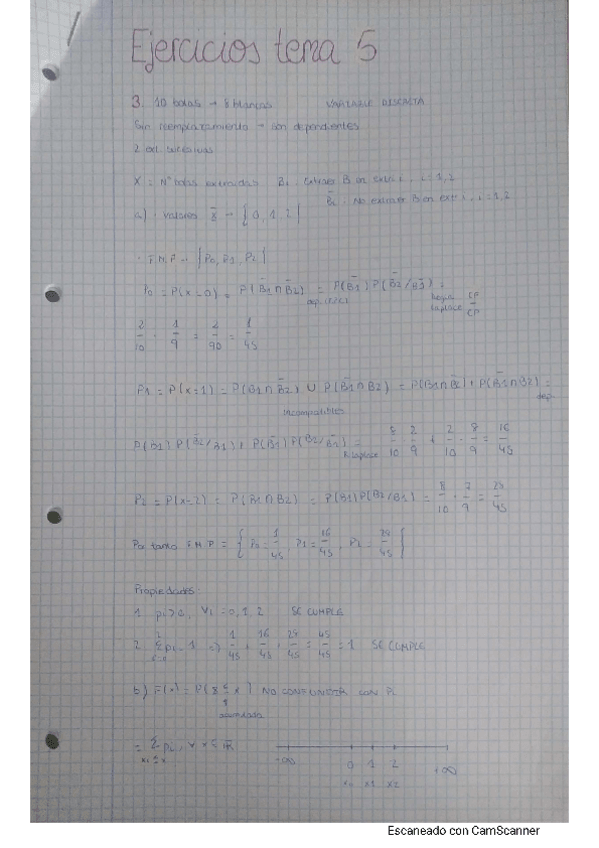 Ejercicios tema 5
3. 10 bolas → 8 blancas VARIABLE DISCRETA
Sin reemplazamiento → son dependientes
2 ext. sucesivas
X = Nº bolas extraidas Bi: Extraer B en extr i, i = 1,2
B̄i: No extraer B en extr i, i = 1,2
a) · valores X → {0, 1, 2}
· F.M.P → {P0, P1, P2}
P0 = P(X=0) = P(B̄1 ∩ B̄2) = P(B̄1) P(B̄2/B̄1) =
regla Laplace CF/CP
2/10 · 1/9 = 2/90 = 1/45
P1 = P(X=1) = P(B1 ∩ B̄2) ∪ P(B̄1 ∩ B2) = P(B1 ∩ B̄2) + P(B̄1 ∩ B2) =
incompatibles dep.
P(B1) P(B̄2/B1) + P(B̄1) P(B2/B̄1) = 8/10 · 2/9 + 2/10 · 8/9 = 16/45
R. Laplace
P2 = P(X=2) = P(B1 ∩ B2) = P(B1) P(B2/B1) = 8/10 · 7/9 = 28/45
Por tanto F.M.P = { P0 = 1/45, P1 = 16/45, P2 = 28/45 }
Propiedades:
1. pi ≥ 0, ∀i = 0, 1, 2 SE CUMPLE
2. Σ pi = 1 → 1/45 + 16/45 + 28/45 = 45/45 = 1 SE CUMPLE
b) F(x) = P(X ≤ x) NO CONFUNDIR CON Pi
acumulada
= Σ pi, ∀ x ∈ ℝ
xi ≤ x
-∞ 0 1 2 +∞
x0 x1 x2
Escaneado con CamScanner